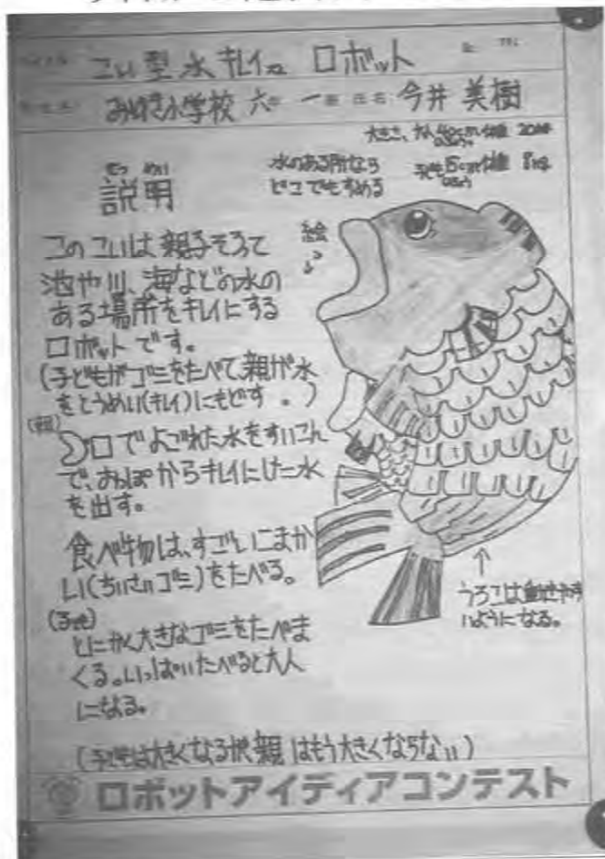 こい型水キレイ ロボット
小学校 六年 一 氏名 今井 美樹
大きさ、大人40cm 体重 20
水のある所なら
どこでもすめる
子ども15cm 体重
せつ めい
説明
絵
このこいは親子そろって
池や川、海などの水の
ある場所をキレイにする
ロボットです。
(子どもがゴミをたべて、親が水
をとうめい(キレイ)にもどす。)
(親)
口でよごれた水をすいこん
で、おっぽからキレイにした水
を出す。
食べ物は、すごいこまか
い(ちいさいゴミ)をたべる。
とにかく大きなゴミをたべま
くる。いっぱいたべると大人
になる。
うろこは
いようになる。
(子どもは大きくなるが、親はもう大きくならない)
ロボットアイディアコンテスト